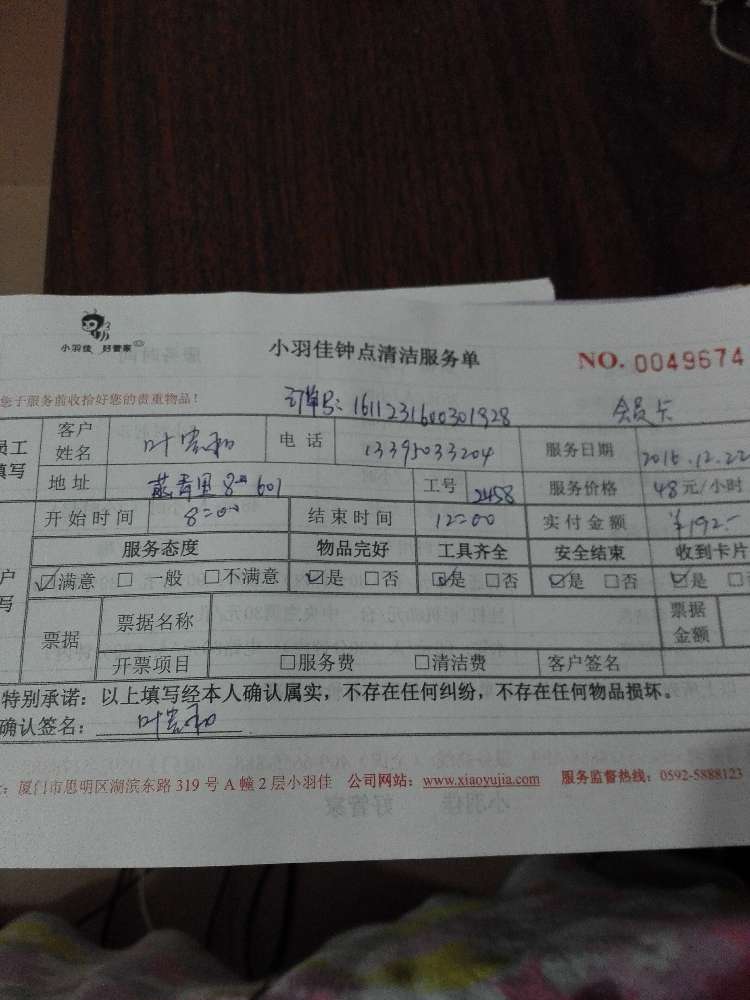 小羽佳 好管家
小羽佳钟点清洁服务单
NO. 0049674
您于服务前收拾好您的贵重物品！
订单号：1611231600301928 会员卡
员工填写 客户姓名 叶 电话 13395033204 服务日期 2016.12.22
地址 里8 601 工号 2458 服务价格 48元/小时
开始时间 8:00 结束时间 12:00 实付金额 ¥192.-
服务态度 物品完好 工具齐全 安全结束 收到卡片
☑满意 □一般 □不满意 ☑是 □否 ☑是 □否 ☑是 □否 ☑是 □
户
写
票据 票据名称 票据金额
开票项目 □服务费 □清洁费 客户签名
特别承诺：以上填写经本人确认属实，不存在任何纠纷，不存在任何物品损坏。
确认签名：叶
：厦门市思明区湖滨东路319号A幢2层小羽佳 公司网站：www.xiaoyujia.com 服务监督热线：0592-5888123